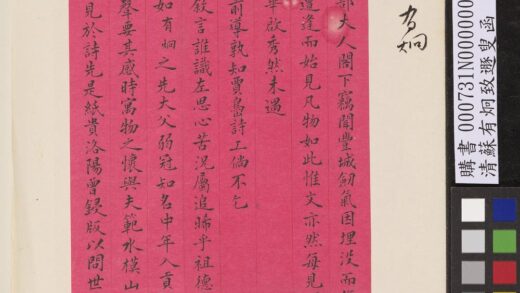 購書 000731N000000
清蘇有炯致遯叟函
有炯
部夫人閣下竊聞豐城劒氣因埋沒而
遭逢而始見凡物如此惟文亦然每見
華啟秀然未遇
前導孰知賈島詩工倘不乞
敘言誰識左思心苦況屬追晞乎祖德
如有炯之先大父弱冠知名中年入貢
聲要其感時寓物之懷與夫範水模山
見於詩先是紙貴洛陽曾鋟版以問世